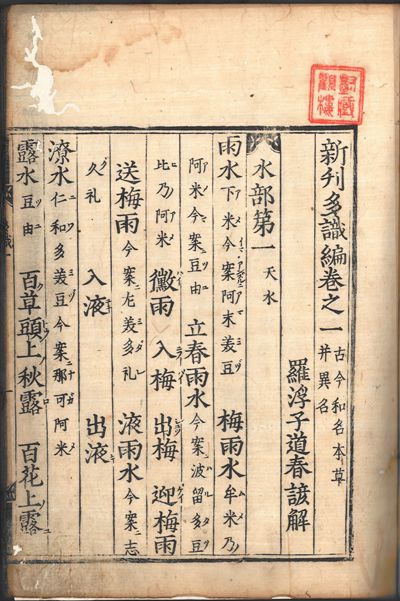 新刊多識編卷之一 古今和名本草
并異名
羅浮子道春諺解
水部第一 天水
雨水 下米今案阿末美豆 梅雨水 牟米乃
阿米今案豆由 立春雨水 今案波留多豆
比乃阿米 黴雨 入梅 出梅 迎梅雨
送梅雨 今案左美多礼 液雨水 今案志
久礼 入液 出液
潦水 仁和多美豆今案那可阿米
露水 豆由 百草頭上秋露 百花上露